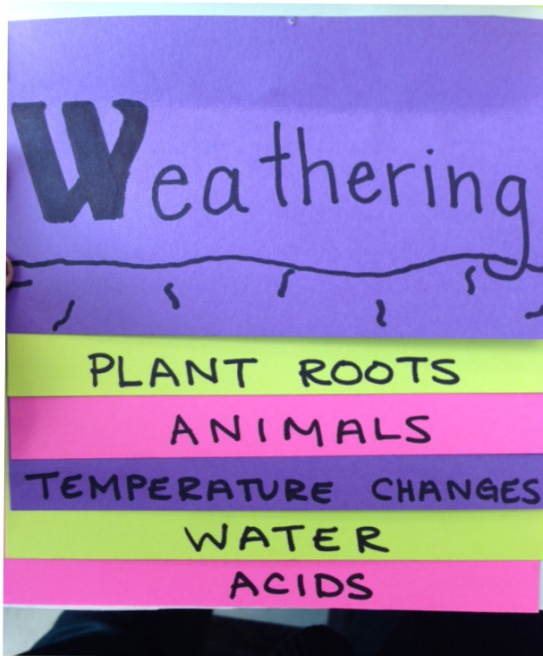 Weathering
PLANT ROOTS
ANIMALS
TEMPERATURE CHANGES
WATER
ACIDS